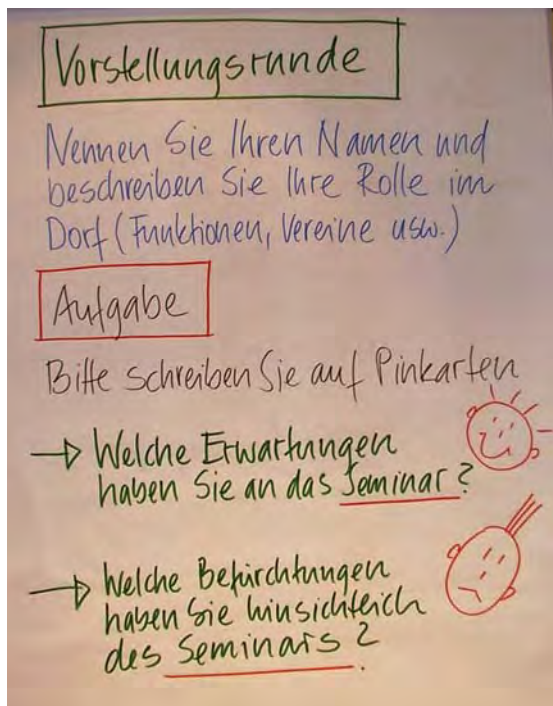 Vorstellungsrunde
Nennen Sie Ihren Namen und
beschreiben Sie Ihre Rolle im
Dorf (Funktionen, Vereine usw.)
Aufgabe
Bitte schreiben Sie auf Pinkarten
→ Welche Erwartungen
haben Sie an das Seminar?
→ Welche Befürchtungen
haben Sie hinsichtlich
des Seminars?